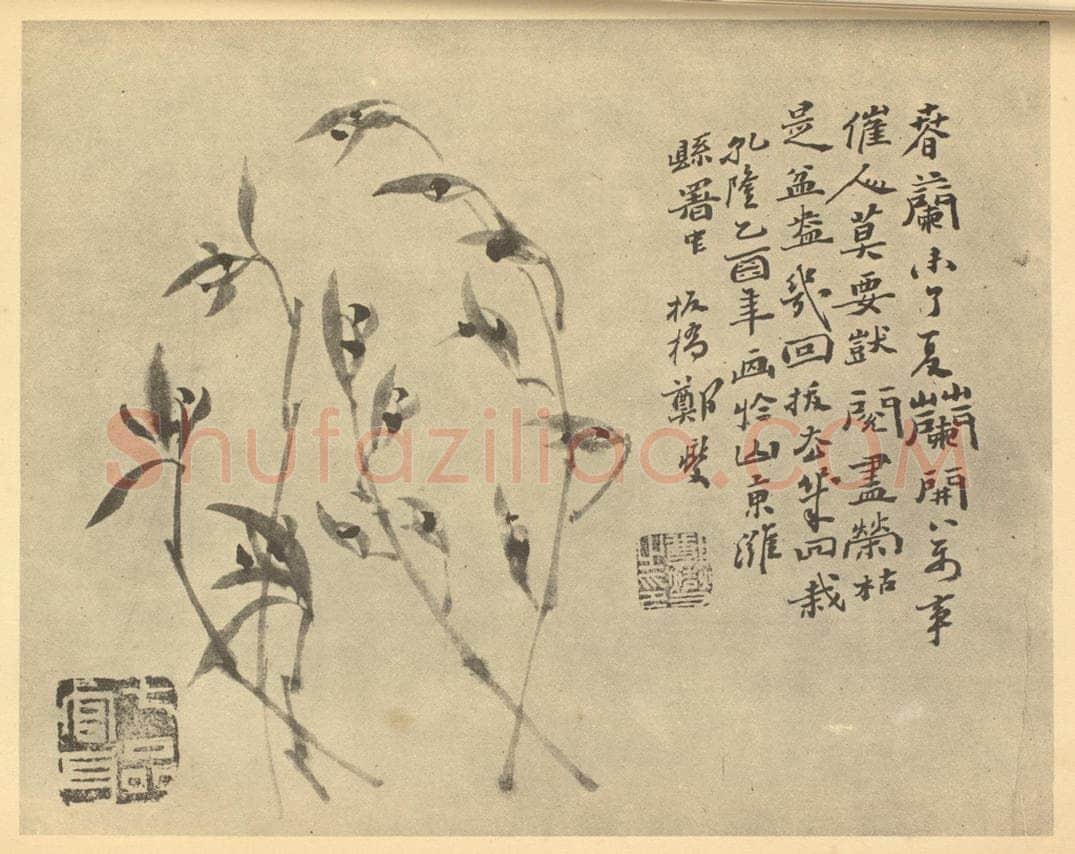 春蘭未了夏蘭開万事
催人莫要獃閱盡榮枯
是盆盎幾回拔去幾回栽
乾隆乙酉年画於山東濰
縣署中 板橋鄭燮
七品官耳
Shufaziliao.COM